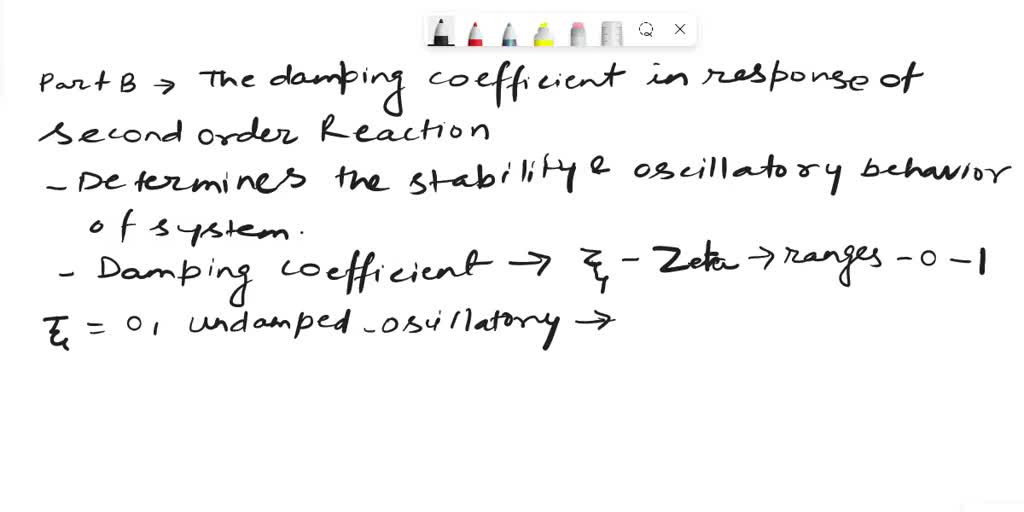 Part B → The damping coefficient in response of
second order Reaction
- Determines the stability & oscillatory behavior
of system.
- Damping coefficient → ξ - Zeta → ranges - 0 - 1
ξ = 0, undamped - oscillatory →